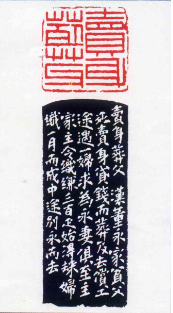 賣身
葬父
賣身葬父 漢董永家貧父
死賣身貸錢而葬及去償工
途遇婦求為永妻俱至主
家主令織縑三百疋始婦
織一月而成中途別永而去